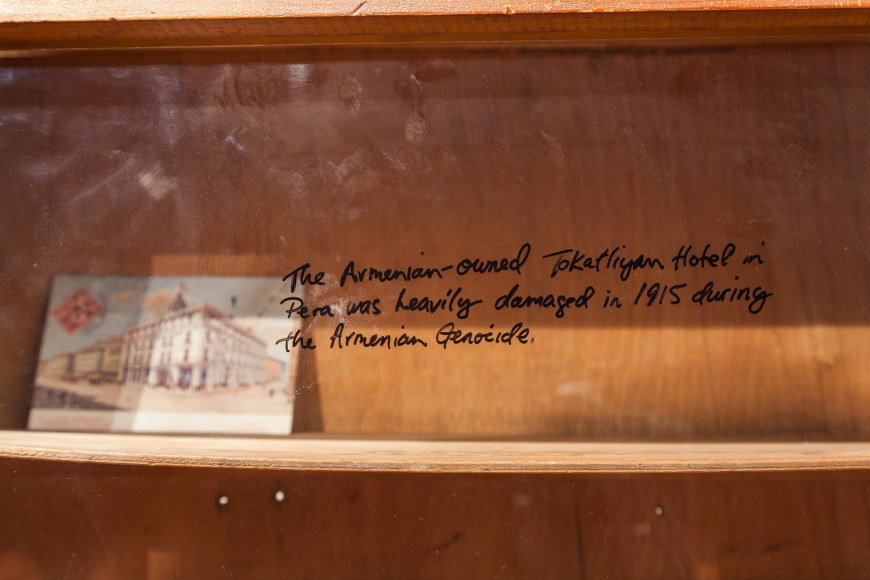 The Armenian-owned Tokatliyan Hotel in
Pera was heavily damaged in 1915 during
the Armenian Genocide.